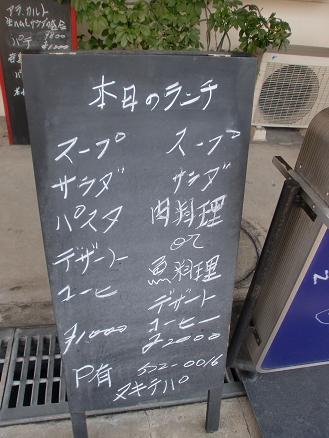 本日のランチ
スープ
サラダ
パスタ
デザート
コーヒー
¥1000
スープ
サラダ
肉料理
or
魚料理
デザート
コーヒー
¥2000
P有 522-0016
ヌキテパ
アラカルト
パテ